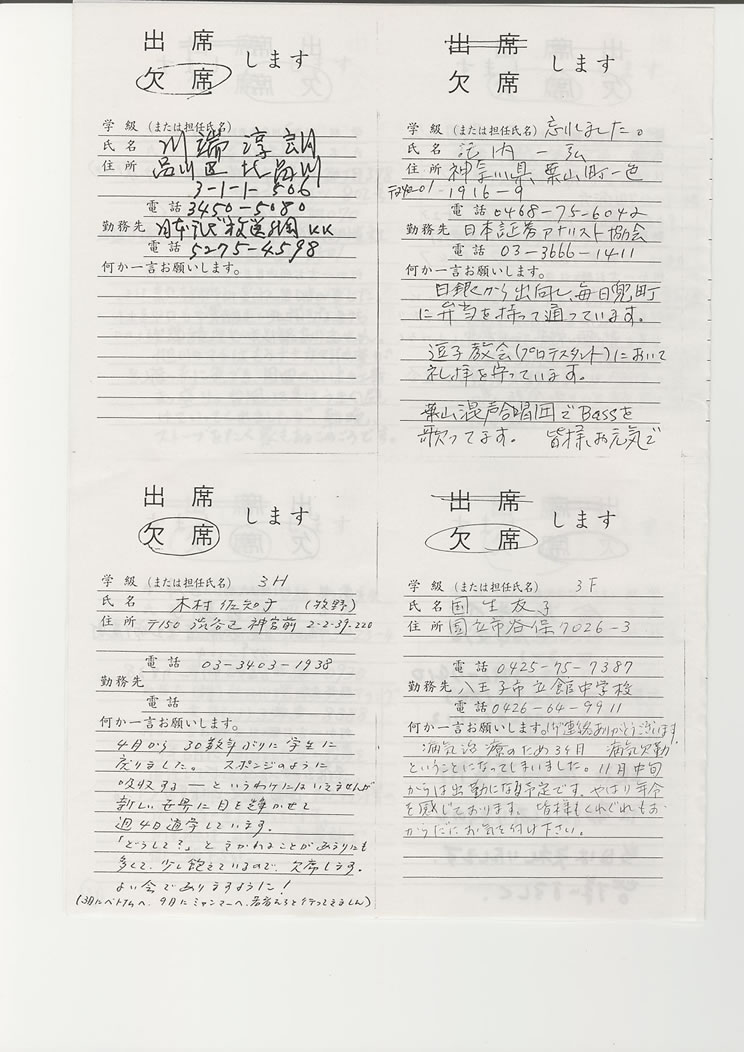 出席
欠席
します
学級（または担任氏名）
氏名 川端淳朗
住所 品川区北品川
3-1-1-506
電話 3450-5080
勤務先 日本 放送 KK
電話 5275-4598
何か一言お願いします。
出席
欠席
します
学級（または担任氏名） 忘れました。
氏名 内一弘
住所 神奈川県葉山町一色
1916-9
電話 0468-75-6042
勤務先 日本証券アナリスト協会
電話 03-3666-1411
何か一言お願いします。
日銀から出向し、毎日兜町
に弁当を持って通っています。
逗子教会(プロテスタント)において
礼拝を守っています。
葉山混声合唱団でBassを
歌ってます。 皆様お元気で
出席
欠席
します
学級（または担任氏名） 3H
氏名 木村佐知子 (牧野)
住所 〒150 渋谷区神宮前2-2-39-220
電話 03-3403-1938
勤務先
電話
何か一言お願いします。
4月から30数年ぶりに学生に
戻りました。 スポンジのように
吸収する ― というわけにはいきませんが
新しい世界に目を輝かせて
週4日通学しています。
「どうして?」ときかれることがあまりにも
多くて、少し飽きているので、欠席します。
よい会でありますように!
(3月にベトナムへ、9月にミャンマーへ、若者たちと行ってきました)
出席
欠席
します
学級（または担任氏名） 3F
氏名 国生友子
住所 国立市谷保7026-3
電話 0425-75-7387
勤務先 八王子市立館中学校
電話 0426-64-9911
何か一言お願いします。御連絡ありがとうございます。
病気治療のため3ヶ月 病気欠勤
ということになってしまいました。11月中旬
からは出勤になる予定です。やはり年令
を感じております。皆様もくれぐれもお
からだにお気を付け下さい。